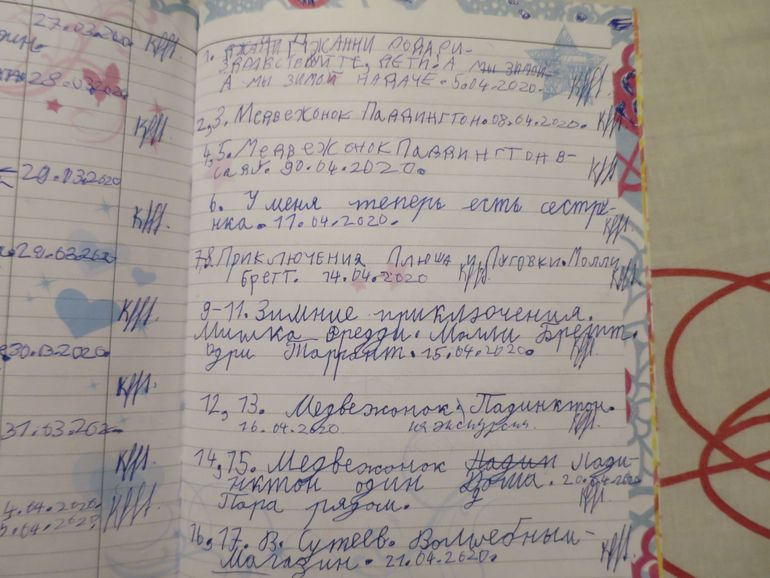 27.03.2020 КМ
28.03.2020
КМ
29.03.2020
КМ
29.03.2020
КМ
30.03.2020
КМ
31.03.202
КМ
4.04.2020
5.04.2020 КМ
1. ДЖАНИ ДЖАННИ РОДАРИ-
ЗДРАВСТВУЙТЕ, ДЕТИ. А МЫ ЗИМОЙ
А МЫ ЗИМОЙ НА ДАЧЕ. 5.04.2020. КМ
2,3. МЕДВЕЖОНОК ПАДДИНГТОН. 08.04.2020. КМ
4,5. МЕДВЕЖОНОК ПАДДИНГТОН В
САДУ. 90.04.2020. КМ
6. У меня теперь есть сестрё-
нка. 11.04.2020. КМ
7,8. Приключения Плюша и Пуговки. Молли
Бретт. 14.04.2020 КМ КМ
9-11. Зимние приключения.
Милка Фредди. Молли Бретт.
Одри Таррант. 15.04.2020. КМ
12, 13. Медвежонок Падинктон.
16.04.2020 на экскурсии. КМ
14, 15. Медвежонок Пади-
нктон один дома. 20.04.2020
Пара рядом. КМ
16, 17. В. Сутеев. Волшебный
магазин. 21.04.2020. КМ